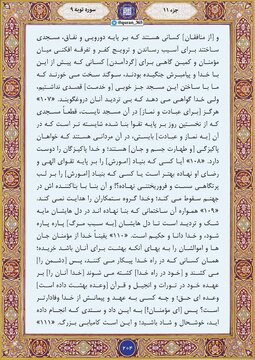 جزء ۱۱
سوره توبه ۹
و [از منافقان] کسانی هستند که بر پایه دورویی و نفاق، مسجدی
ساختند برای آسیب رساندن و ترویج کفر و تفرقه افکنی میان
مؤمنان و کمین گاهی برای [گردآمدن] کسانی که پیش از این
با خدا و پیامبرش جنگیده بودند، سوگند سخت می خورند که
ما با ساختن این مسجد جز خوبی [و خدمت] قصدی نداشتیم،
ولی خدا گواهی می دهد که بی تردید آنان دروغگویند. «۱۰۷»
هرگز [برای عبادت و نماز] در آن مسجد نایست، قطعاً مسجدی
که از نخستین روز بر پایه تقوا بنا شده شایسته تر است که در
آن [به نماز و عبادت] بایستی، در آن مردانی هستند که خواهان
پاکیزگی [و طهارت جسم و جان] هستند؛ و خدا پاکیزگان را دوست
دارد. «۱۰۸» آیا کسی که بنیاد [امورش] را بر پایه تقوای الهی و
رضای او نهاده بهتر است یا کسی که بنیاد [امورش] را بر لب
پرتگاهی سست و فروریختنی نهاده؟! و آن بنا با بناکننده اش در
جهنم سقوط می کند؛ و خدا گروه ستمکاران را هدایت نمی کند.
«۱۰۹» همواره آن ساختمانی که بنا نهاده اند در دل هایشان مایه
شک و تردید است تا دل هایشان [به سبب مرگ] پاره پاره
شود، و خدا دانا و حکیم است. «۱۱۰» یقیناً خدا از مؤمنان جان
ها و اموالشان را به بهای آنکه بهشت برای آنان باشد خریده؛
همان کسانی که در راه خدا پیکار می کنند، پس [دشمن را]
می کشند و [خود در راه خدا] کشته می شوند [خدا آنان را] بر
عهده خود در تورات و انجیل و قرآن [وعده بهشت داده است]
وعده ای حق؛ و چه کسی به عهد و پیمانش از خدا وفادارتر
است؟ پس [ای مؤمنان!] به این داد و ستدی که انجام داده
اید، خوشحال و شاد باشید؛ و این است کامیابی بزرگ. «۱۱۱»
۲۰۴